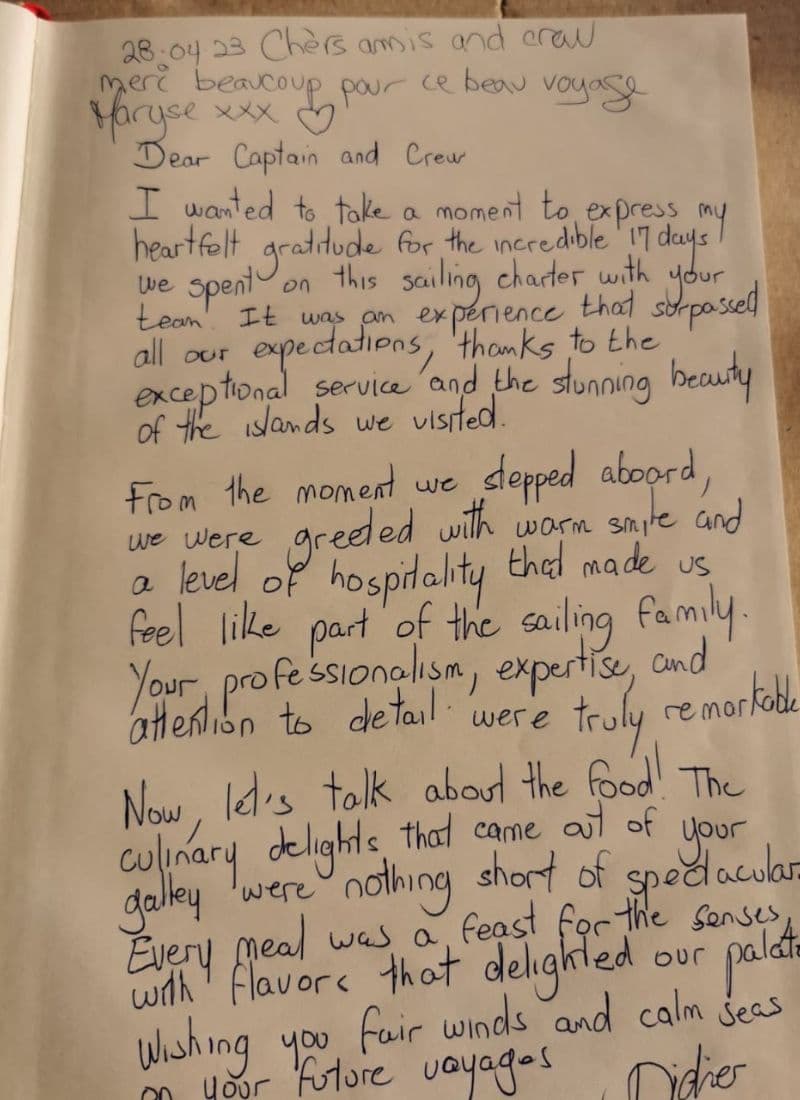 28.04 23 Chèrs amis and crew
merci beaucoup pour ce beau voyage
Maryse xxx
Dear Captain and Crew
I wanted to take a moment to express my
heartfelt gratitude for the incredible 17 days
we spent on this sailing charter with your
team. It was an experience that surpassed
all our expectations, thanks to the
exceptional service and the stunning beauty
of the islands we visited.
From the moment we stepped aboard,
we were greeted with warm smile and
a level of hospitality that made us
feel like part of the sailing family.
Your professionalism, expertise, and
attention to detail were truly remarkable
Now, let's talk about the food! The
culinary delights that came out of your
galley were nothing short of spectacular.
Every meal was a feast for the senses,
with flavors that delighted our palate
Wishing you fair winds and calm seas
on your future voyages
Didier